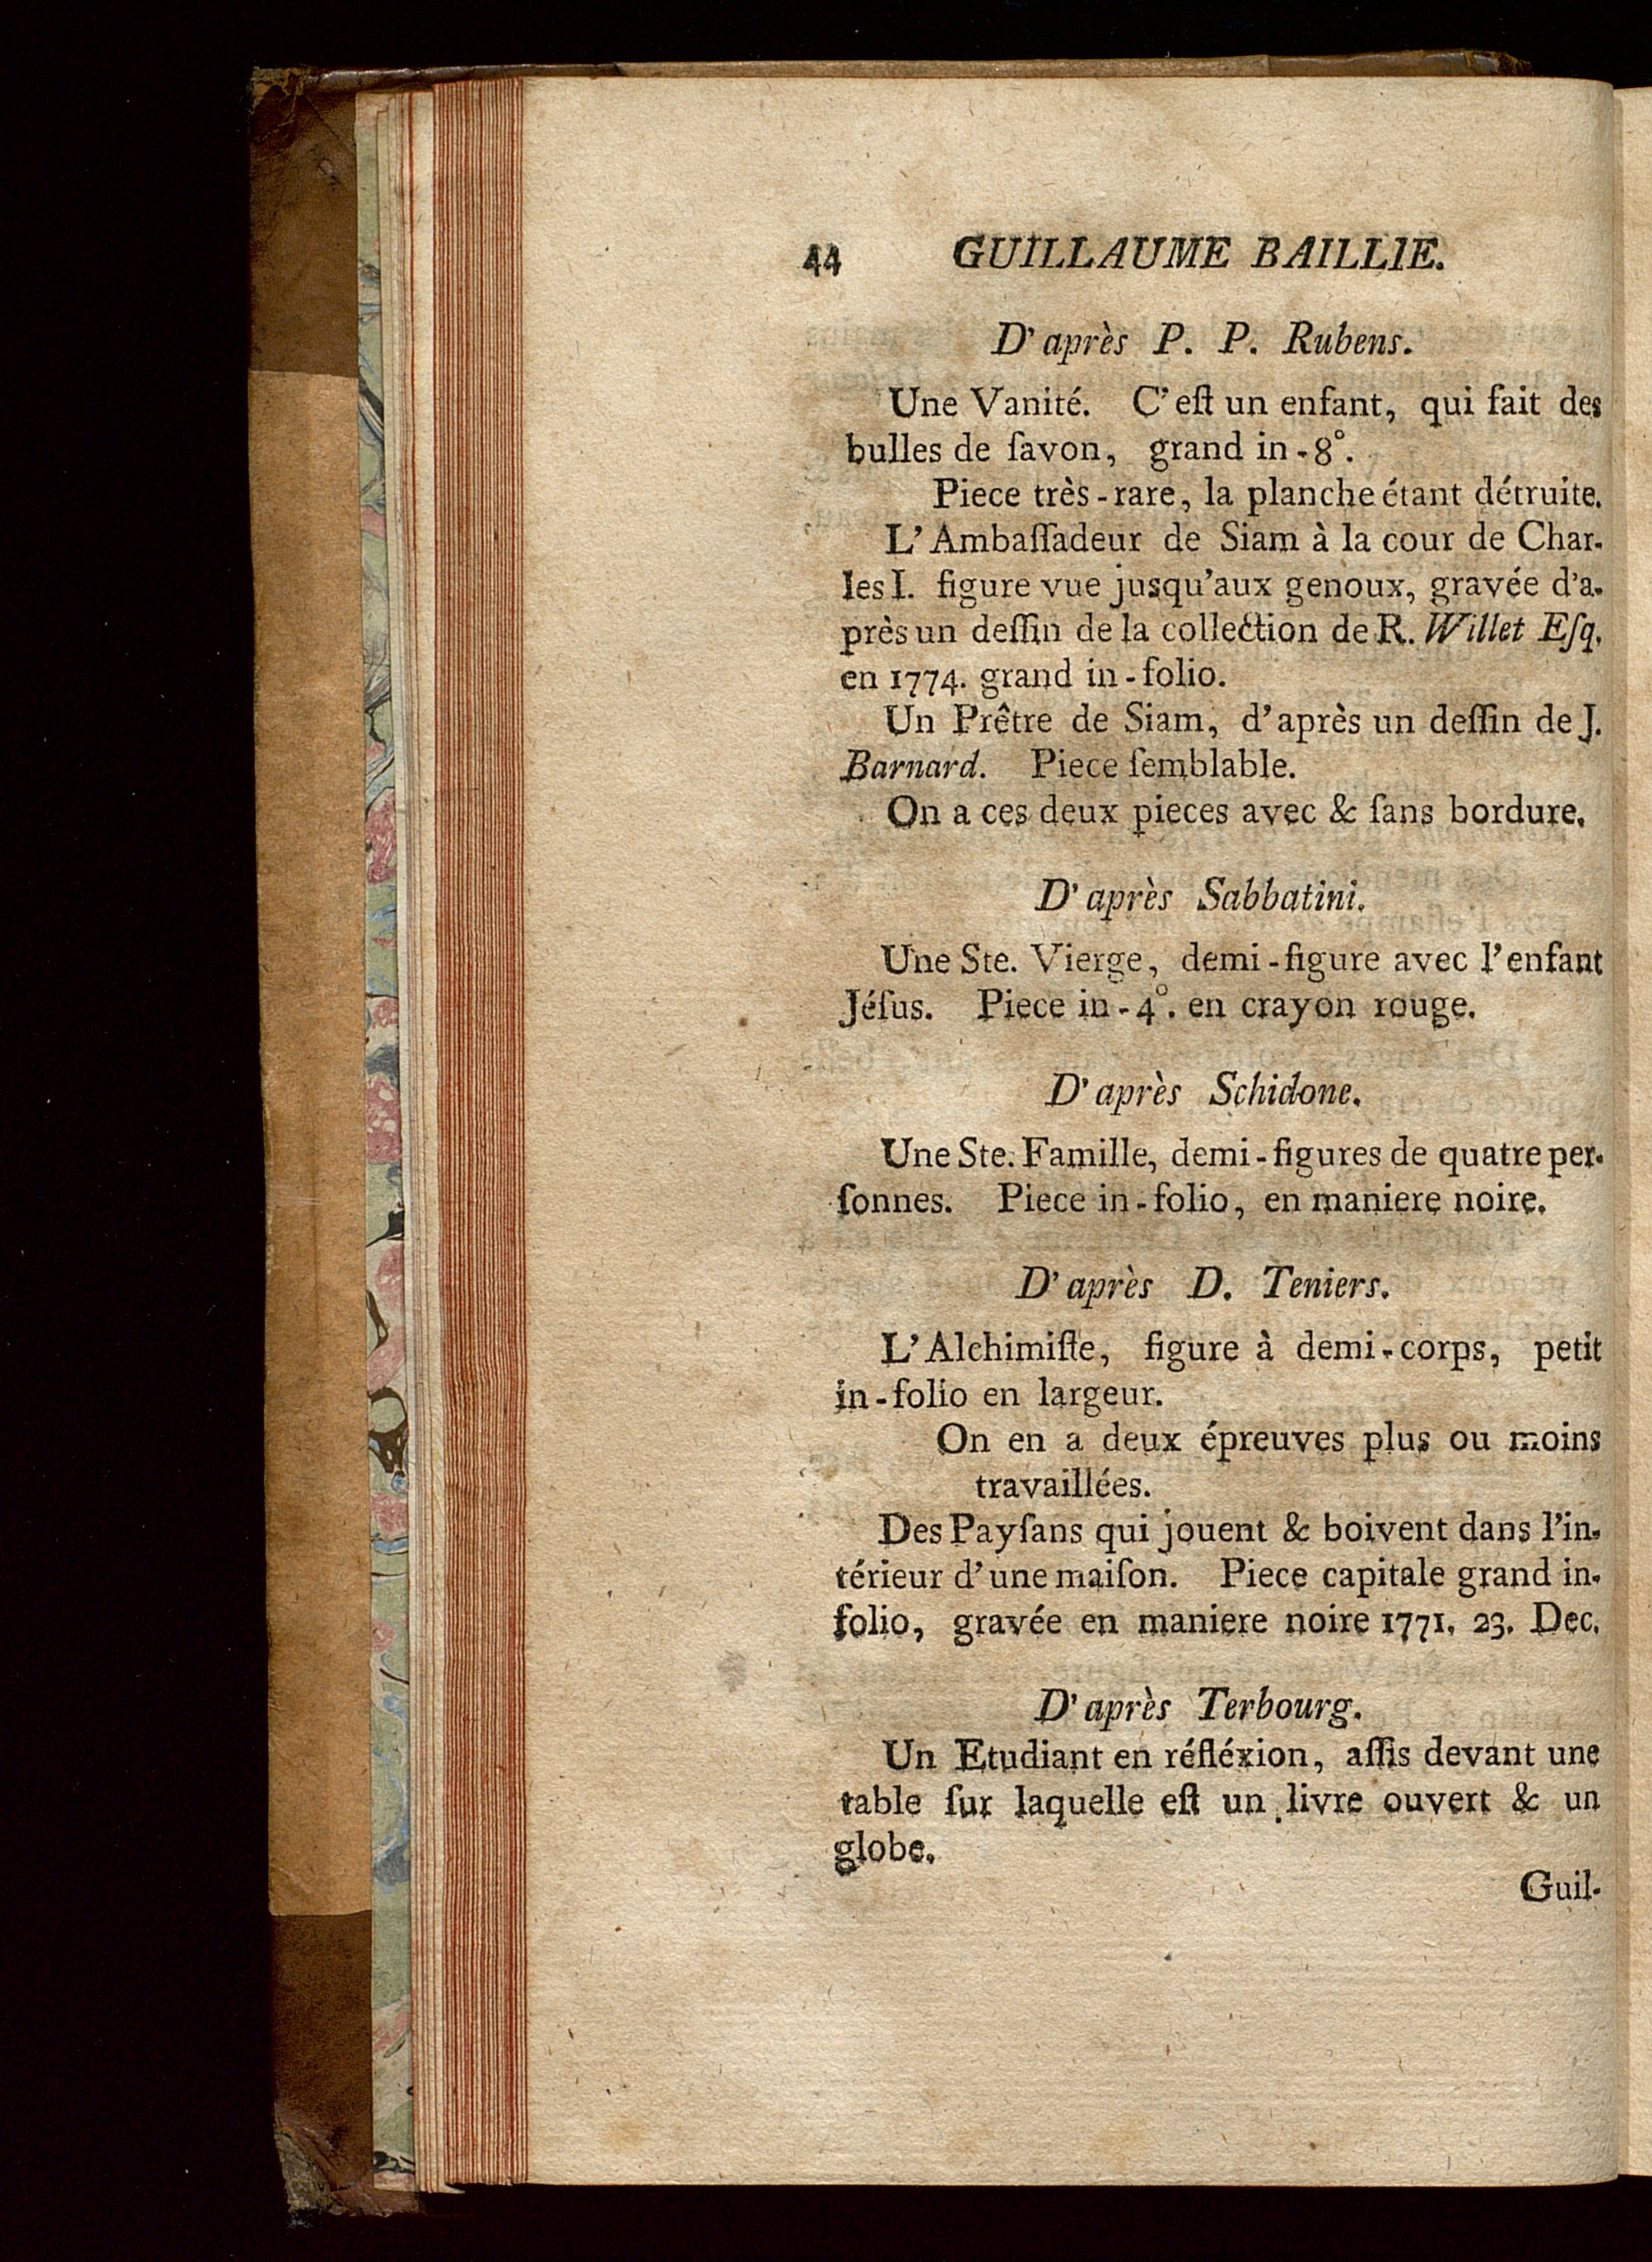 44 GUILLAUME BAILLIE.
D'après P. P. Rubens.
Une Vanité. C'eſt un enfant, qui fait des
bulles de ſavon, grand in-8°.
Piece très-rare, la planche étant détruite.
L'Ambaſſadeur de Siam à la cour de Char-
les I. figure vue jusqu'aux genoux, gravée d'a-
près un deſſin de la collection de R. Willet Eſq.
en 1774. grand in-folio.
Un Prêtre de Siam, d'après un deſſin de J.
Barnard. Piece ſemblable.
On a ces deux pieces avec & ſans bordure.
D'après Sabbatini.
Une Ste. Vierge, demi-figure avec l'enfant
Jéſus. Piece in-4°. en crayon rouge.
D'après Schidone.
Une Ste. Famille, demi-figures de quatre per-
ſonnes. Piece in-folio, en maniere noire.
D'après D. Teniers.
L'Alchimiſte, figure à demi-corps, petit
in-folio en largeur.
On en a deux épreuves plus ou moins
travaillées.
Des Payſans qui jouent & boivent dans l'in-
térieur d'une maiſon. Piece capitale grand in-
folio, gravée en maniere noire 1771. 23. Dec.
D'après Terbourg.
Un Etudiant en réfléxion, aſſis devant une
table ſur laquelle eſt un livre ouvert & un
globe.
Guil-